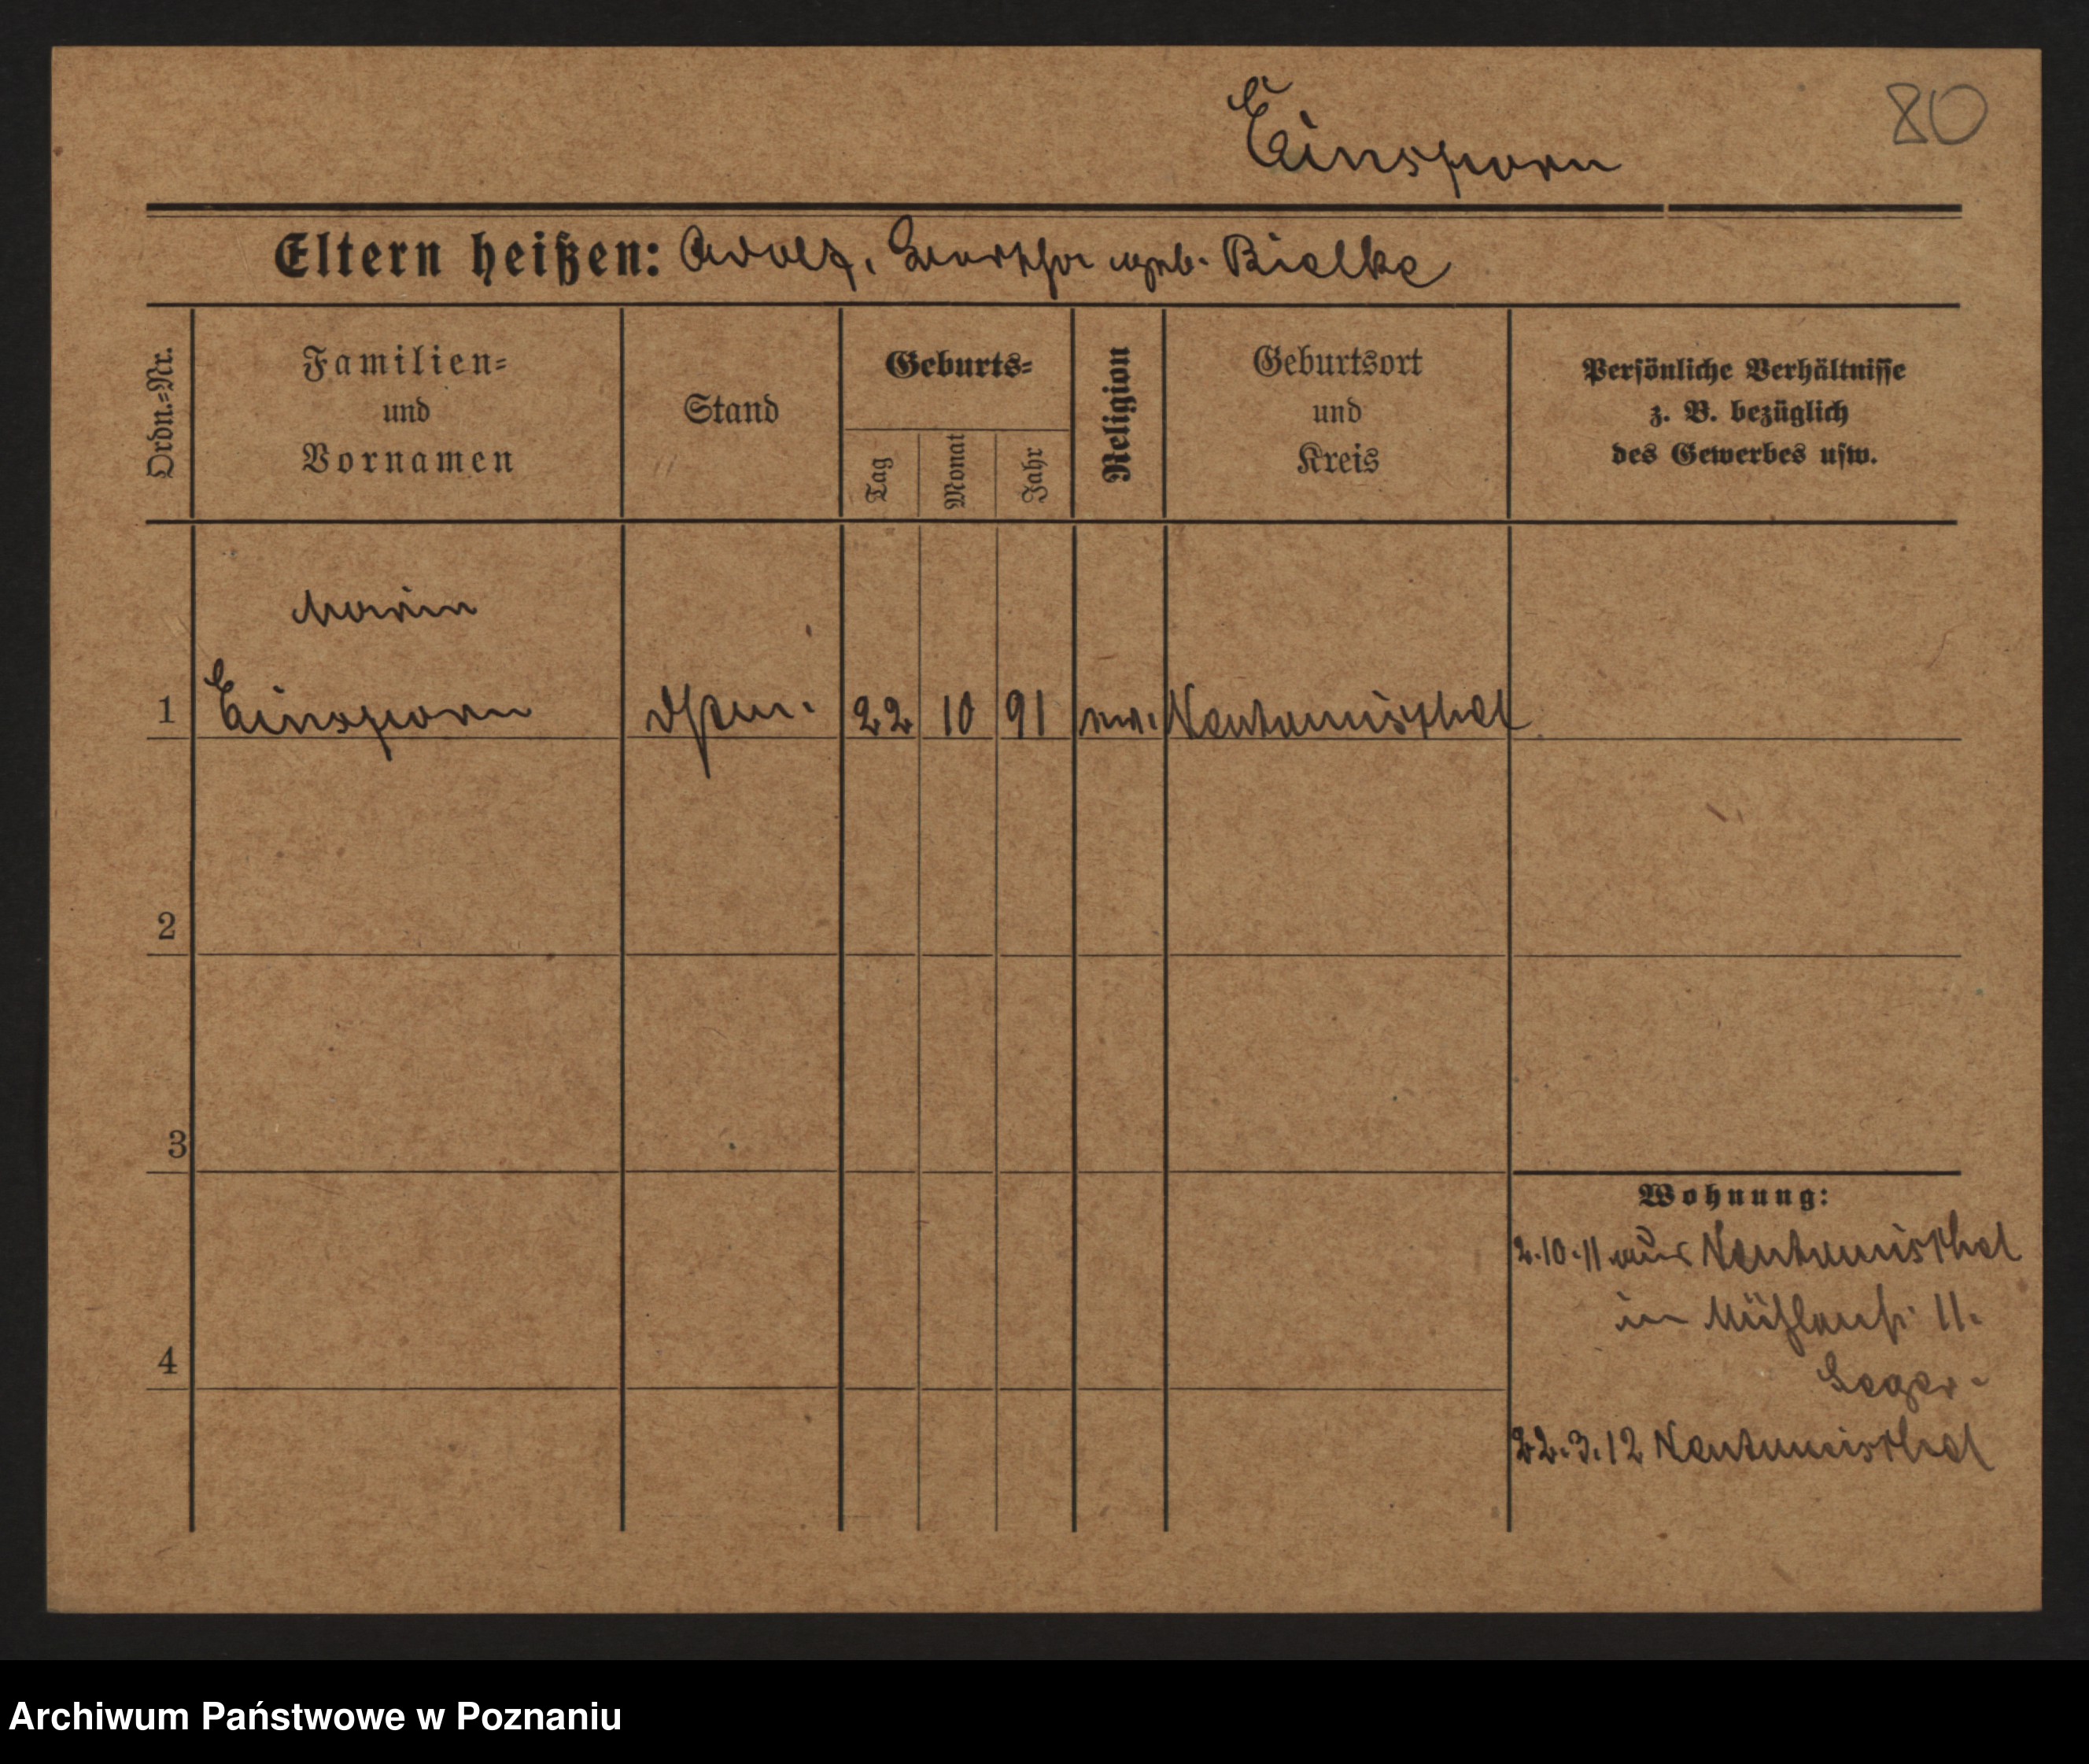 Einsporn
80
Eltern heißen: Adolf, Bertha geb. Bielke
Ordn.=Nr.
Familien=
und
Vornamen
Stand
Geburts=
Tag
Monat
Jahr
Religion
Geburtsort
und
Kreis
Persönliche Verhältnisse
z. B. bezüglich
des Gewerbes usw.
Maria
1 Einsporn 22 10 91 Neutomischel
2
3
4
Wohnung:
2.10.11 aus Neutomischel
in 11.
22.3.12 Neutomischel
Archiwum Państwowe w Poznaniu